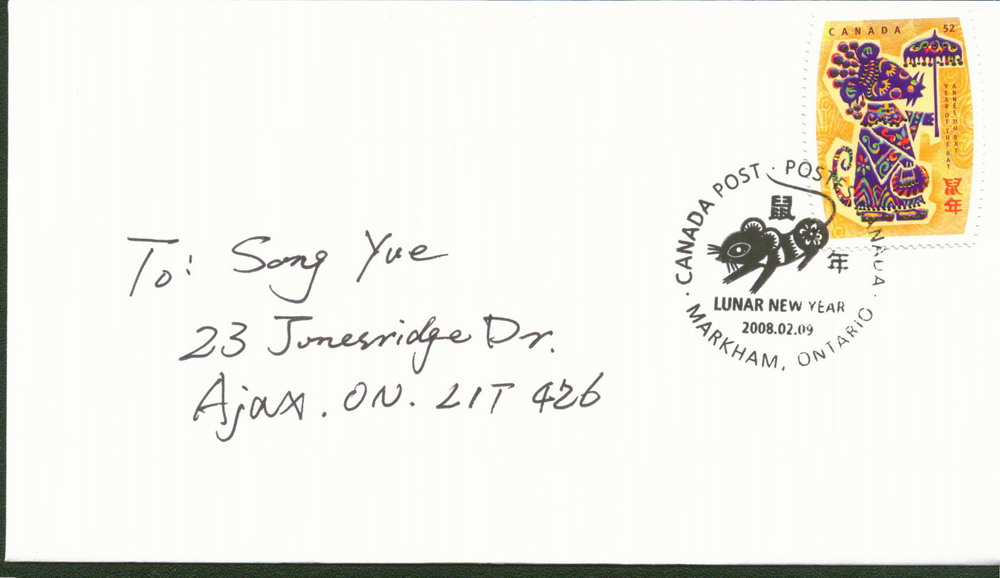 CANADA 52
ANNÉE DU RAT
YEAR OF THE RAT
鼠年
CANADA POST · POSTES CANADA ·
鼠
年
LUNAR NEW YEAR
2008.02.09
MARKHAM, ONTARIO
To: Song Yue
23 Jonesridge Dr.
Ajax. ON. L1T 4Z6